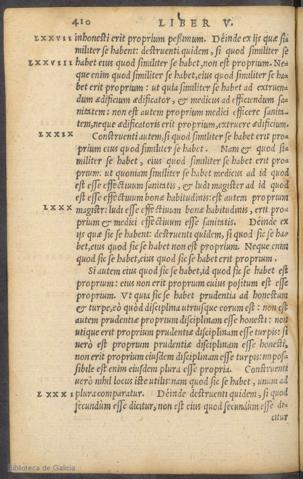 410 LIBER V.
LXXVII inhonesti erit proprium peßimum. Déinde ex ijs quæ si=
militer se habent: destruenti quidem, si quod similiter se
LXXVIII habet eius quod similiter se habet, non est proprium. Ne=
que enim quod similiter se habet, eius quod similiter se ha=
bet erit proprium: ut quia similiter se habet ad extruen=
dum ædificium ædificator, & medicus ad efficiendum sa=
nitatem: non est autem proprium medici efficere sanita=
tem, neque ædificatoris erit proprium, extruere ædificium.
LXXIX Construenti autem, si quod similiter se habet erit pro=
prium eius quod similiter se habet. Nam & quod si=
militer se habet, eius quod similiter se habet erit pro=
prium: ut quoniam similiter se habet medicus ad id quod
est esse effectiuum sanitatis, & ludi magister ad id quod
est esse effectiuum bonæ habitudinis: est autem proprium
LXXX magistri ludi esse effectiuum bonæ habitudinis, erit pro=
prium & medici effectiuum esse sanitatis. Déinde ex
ijs quæ sic se habent: destruenti quidem, si quod sic se ha=
bet, eius quod sic se habet non est proprium. Neque enim
quod sic se habet, eius quod sic se habet erit proprium.
Si autem eius quod sic se habet, id quod sic se habet est
proprium: eius non erit proprium cuius positum est esse
proprium. Vt quia sic se habet prudentia ad honestum
& turpe, eò quòd disciplina utrusque eorum est: non est
autem prudentiæ proprium disciplinam esse honesti: non
utique erit proprium prudentiæ disciplinam esse turpis: si
uerò est proprium prudentiæ disciplinam esse honesti,
non erit proprium eiusdem disciplinam esse turpis: impos=
sibile est enim eiusdem plura esse propria. Construenti
uerò nihil locus iste utilis: nam quod sic se habet, unum ad
LXXXI plura comparatur. Déinde destruenti quidem, si quod
secundùm esse dicitur, non est eius quod secundùm esse di=
citur
Biblioteca de Galicia